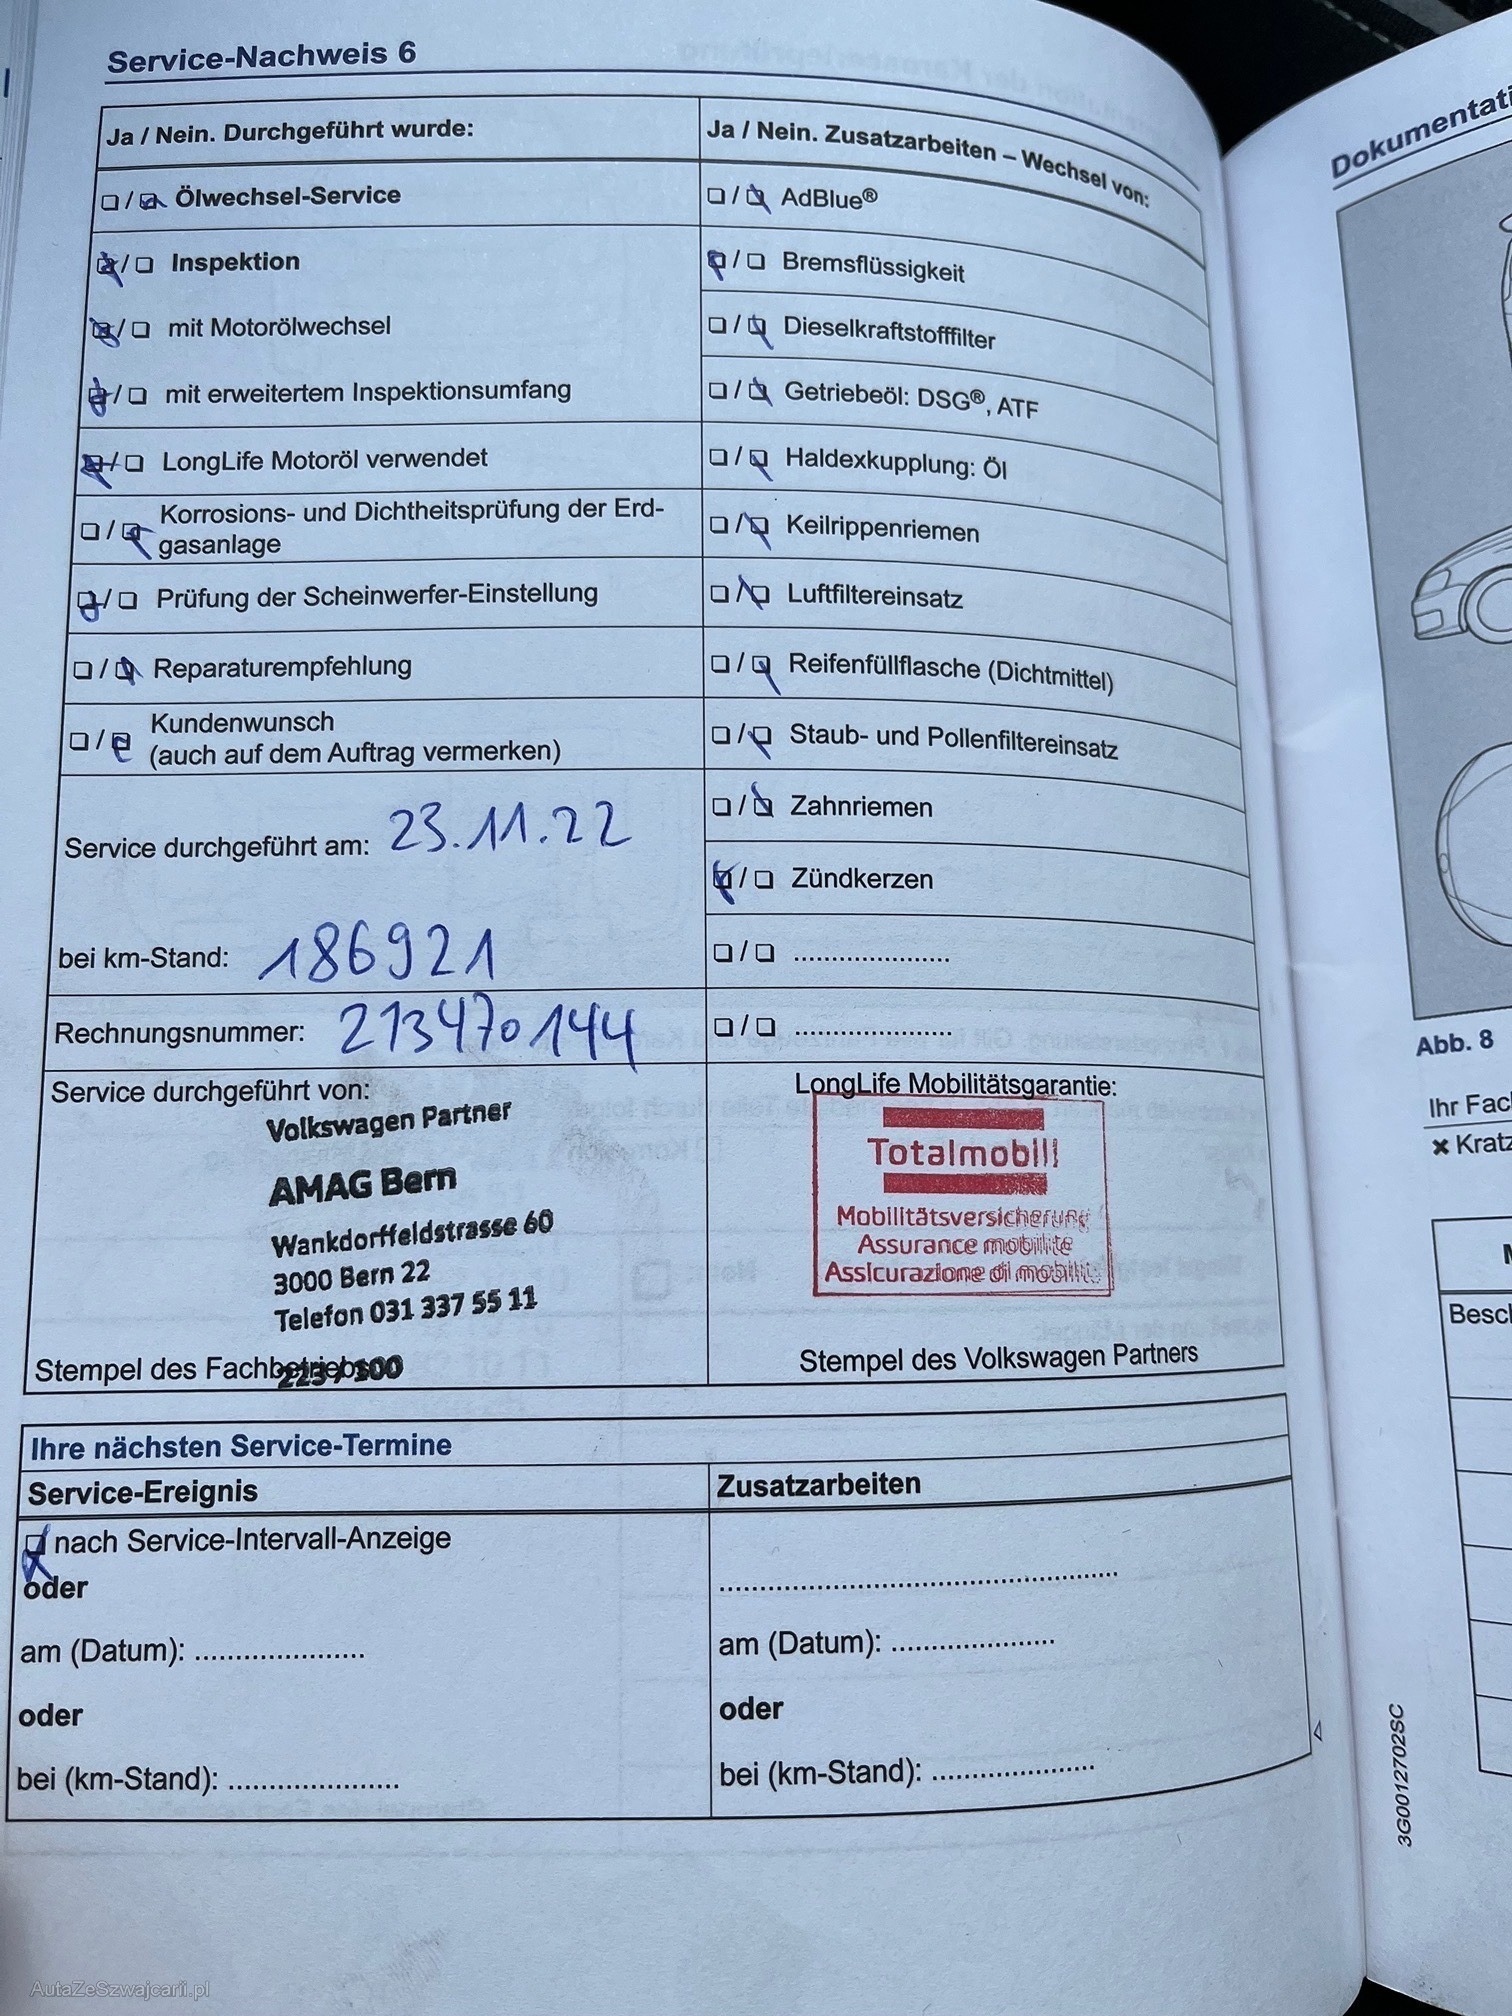 Service-Nachweis 6
Ja / Nein. Durchgeführt wurde:
Ja / Nein. Zusatzarbeiten – Wechsel von:
❏ / ❏ Ölwechsel-Service
❏ / ❏ AdBlue®
❏ / ❏ Inspektion
❏ / ❏ Bremsflüssigkeit
❏ / ❏ mit Motorölwechsel
❏ / ❏ Dieselkraftstofffilter
❏ / ❏ mit erweitertem Inspektionsumfang
❏ / ❏ Getriebeöl: DSG®, ATF
❏ / ❏ LongLife Motoröl verwendet
❏ / ❏ Haldexkupplung: Öl
❏ / ❏ Korrosions- und Dichtheitsprüfung der Erd-
gasanlage
❏ / ❏ Keilrippenriemen
❏ / ❏ Prüfung der Scheinwerfer-Einstellung
❏ / ❏ Luftfiltereinsatz
❏ / ❏ Reparaturempfehlung
❏ / ❏ Reifenfüllflasche (Dichtmittel)
❏ / ❏ Kundenwunsch
(auch auf dem Auftrag vermerken)
❏ / ❏ Staub- und Pollenfiltereinsatz
❏ / ❏ Zahnriemen
Service durchgeführt am: 23.11.22
❏ / ❏ Zündkerzen
bei km-Stand: 186921
❏ / ❏ ......................
Rechnungsnummer: 213470144
❏ / ❏ ......................
Service durchgeführt von:
Volkswagen Partner
AMAG Bern
Wankdorffeldstrasse 60
3000 Bern 22
Telefon 031 337 55 11
Stempel des Fachbetriebs
223 / 100
LongLife Mobilitätsgarantie:
Totalmobil!
Mobilitätsversicherung
Assurance mobilité
Assicurazione di mobilità
Stempel des Volkswagen Partners
Ihre nächsten Service-Termine
Service-Ereignis
Zusatzarbeiten
❏ nach Service-Intervall-Anzeige
oder
am (Datum): ......................
am (Datum): ......................
oder
oder
bei (km-Stand): ......................
bei (km-Stand): ......................
Dokumentati
Abb. 8
Ihr Fac
✖ Kratz
Besch
3G0012702SC
AutaZeSzwajcarii.pl